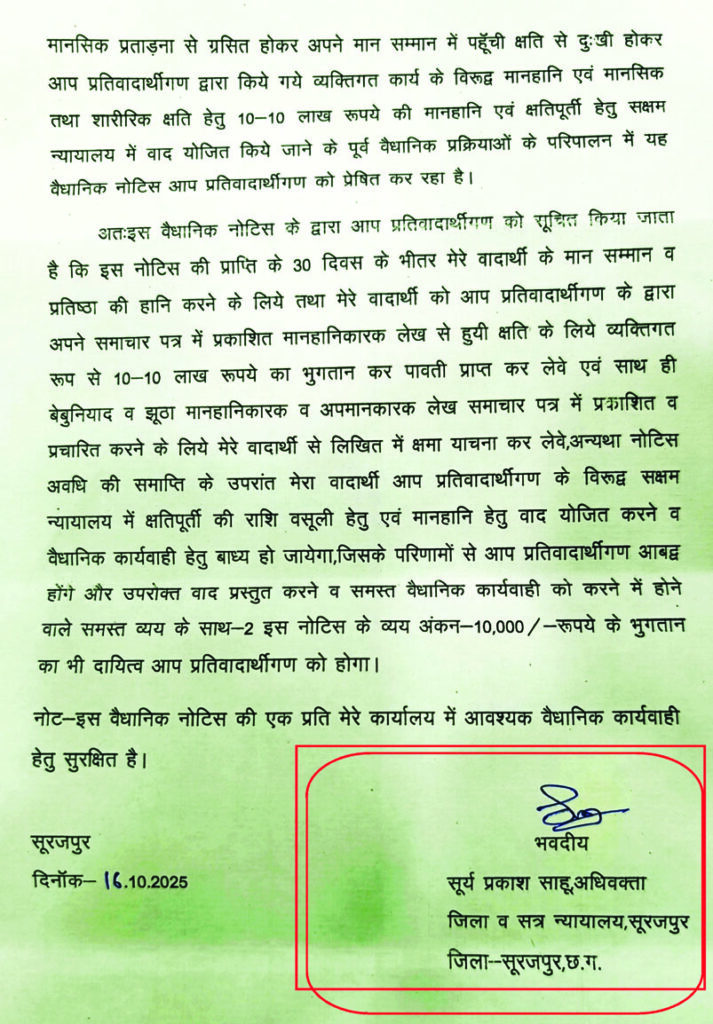 मानसिक प्रताड़ना से ग्रसित होकर अपने मान सम्मान में पहूॅची क्षति से दुःखी होकर
आप प्रतिवादार्थीगण द्वारा किये गये व्यक्तिगत कार्य के विरूद्व मानहानि एवं मानसिक
तथा शारीरिक क्षति हेतु 10–10 लाख रूपये की मानहानि एवं क्षतिपूर्ती हेतु सक्षम
न्यायालय में वाद योजित किये जाने के पूर्व वैधानिक प्रक्रियाओं के परिपालन में यह
वैधानिक नोटिस आप प्रतिवादार्थीगण को प्रेषित कर रहा है।
अतःइस वैधानिक नोटिस के द्वारा आप प्रतिवादार्थीगण को सूचित किया जाता
है कि इस नोटिस की प्राप्ति के 30 दिवस के भीतर मेरे वादार्थी के मान सम्मान व
प्रतिष्ठा की हानि करने के लिये तथा मेरे वादार्थी को आप प्रतिवादार्थीगण के द्वारा
अपने समाचार पत्र में प्रकाशित मानहानिकारक लेख से हुयी क्षति के लिये व्यक्तिगत
रूप से 10–10 लाख रूपये का भुगतान कर पावती प्राप्त कर लेवे एवं साथ ही
बेबुनियाद व झूठा मानहानिकारक व अपमानकारक लेख समाचार पत्र में प्रकाशित व
प्रचारित करने के लिये मेरे वादार्थी से लिखित में क्षमा याचना कर लेवे,अन्यथा नोटिस
अवधि की समाप्ति के उपरांत मेरा वादार्थी आप प्रतिवादार्थीगण के विरूद्व सक्षम
न्यायालय में क्षतिपूर्ती की राशि वसूली हेतु एवं मानहानि हेतु वाद योजित करने व
वैधानिक कार्यवाही हेतु बाध्य हो जायेगा,जिसके परिणामों से आप प्रतिवादार्थीगण आबद्व
होंगे और उपरोक्त वाद प्रस्तुत करने व समस्त वैधानिक कार्यवाही को करने में होने
वाले समस्त व्यय के साथ–2 इस नोटिस के व्यय अंकन–10,000/–रूपये के भुगतान
का भी दायित्व आप प्रतिवादार्थीगण को होगा।
नोट–इस वैधानिक नोटिस की एक प्रति मेरे कार्यालय में आवश्यक वैधानिक कार्यवाही
हेतु सुरक्षित है।
भवदीय
सूरजपुर
दिनॉक– 16.10.2025
सूर्य प्रकाश साहू,अधिवक्ता
जिला व सत्र न्यायालय,सूरजपुर
जिला–सूरजपुर,छ.ग.